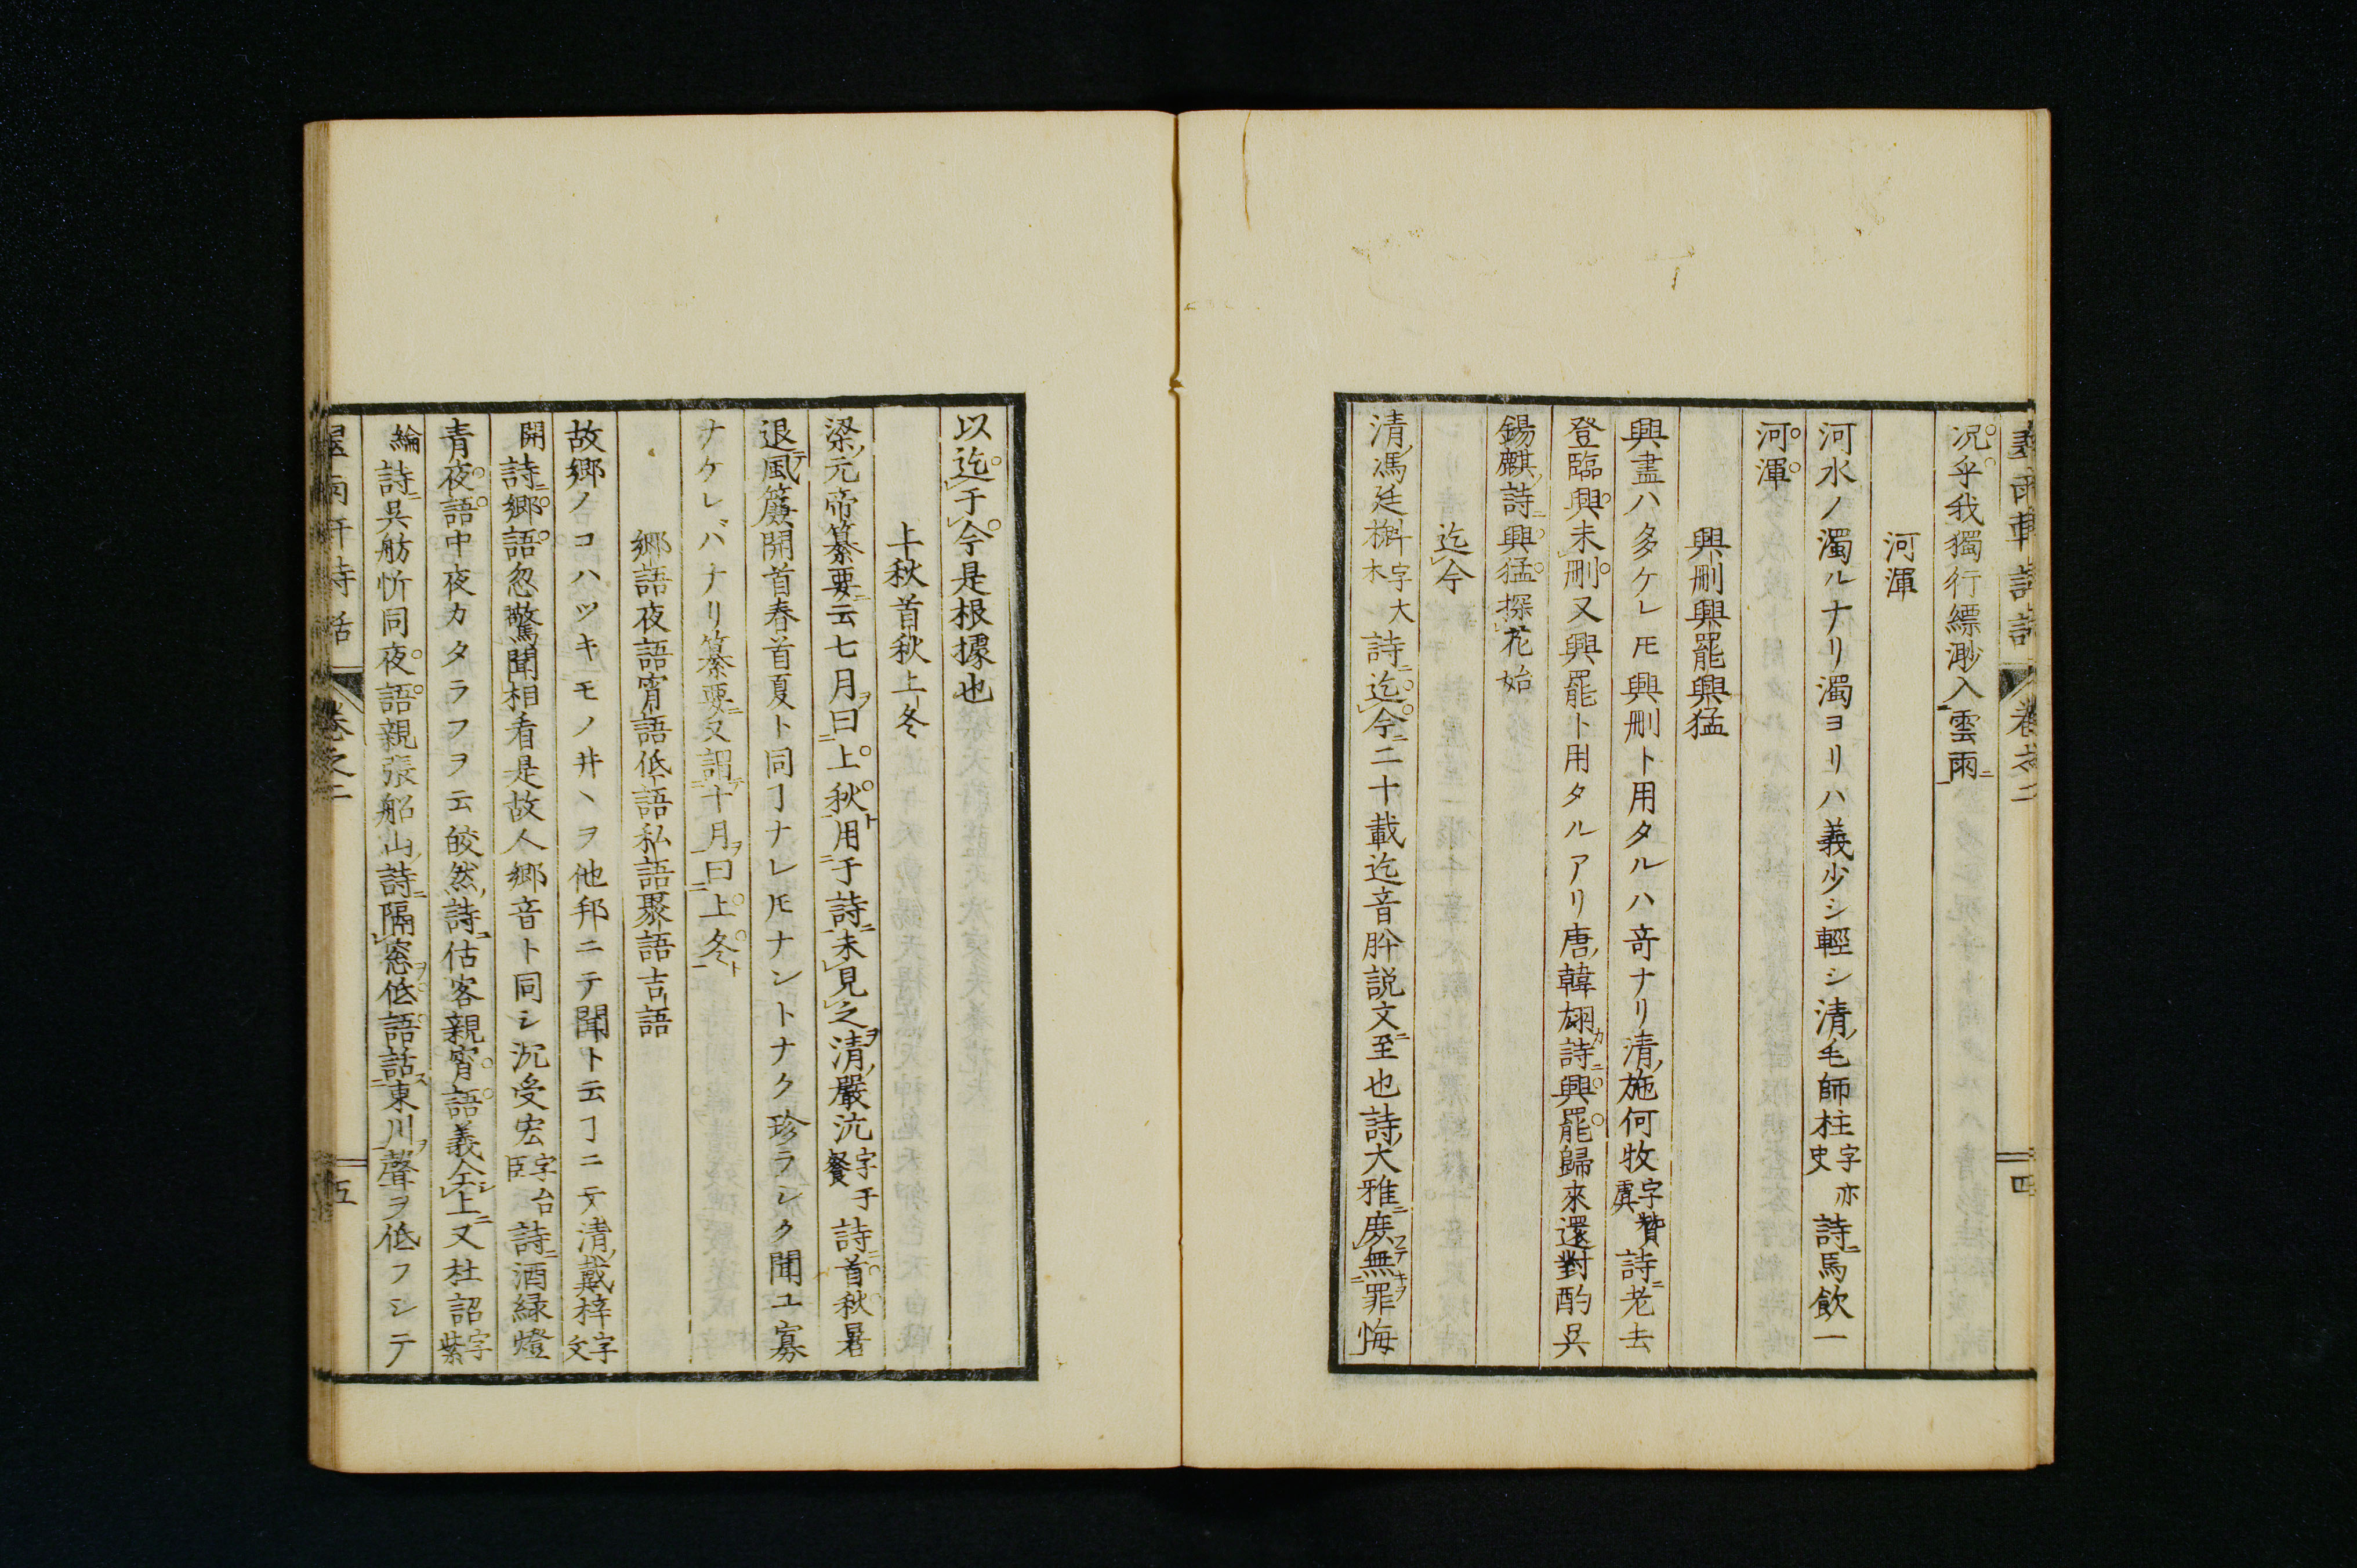 况乎我獨行縹渺入雲雨
河渾
河水ノ濁ルナリ濁ヨリハ義少シ輕シ清毛師柱字亦史詩馬飲一
河渾
興刪興罷興猛
興盡ハ多ケレ𪜈興刪ト用タルハ竒ナリ清施何牧字贊虞詩老去
登臨興未刪又興罷ト用タルアリ唐韓翃詩興罷歸來還對酌吳
錫麒詩興猛探花始
迄今
清馮廷櫆字大木詩迄今二十載迄音肸説文至也詩大雅庶無罪悔
以迄于今是根據也
上秋首秋上冬
梁元帝纂要云七月曰上秋用于詩未見之清嚴沆字子餐詩首秋暑
退風簾開首春首夏ト同ヿナレ𪜈ナントナク珍ラシク聞ユ寡
ナケレバナリ纂要又謂十月曰上冬
鄉語夜語宵語低語私語聚語吉語
故鄉ノコハツキモノ井ヽヲ他邦ニテ聞ト云ヿニテ清戴梓字文
開詩鄉語忽驚聞相看是故人鄉音ト同シ沉受宏字台臣詩酒緑燈
青夜語中夜カタラフヲ云皎然詩估客親宵語義仝上又杜詔字紫
綸詩吳舫忻同夜語親張船山詩隔窓低語話東川聲ヲ低フシテ
卷之二
五